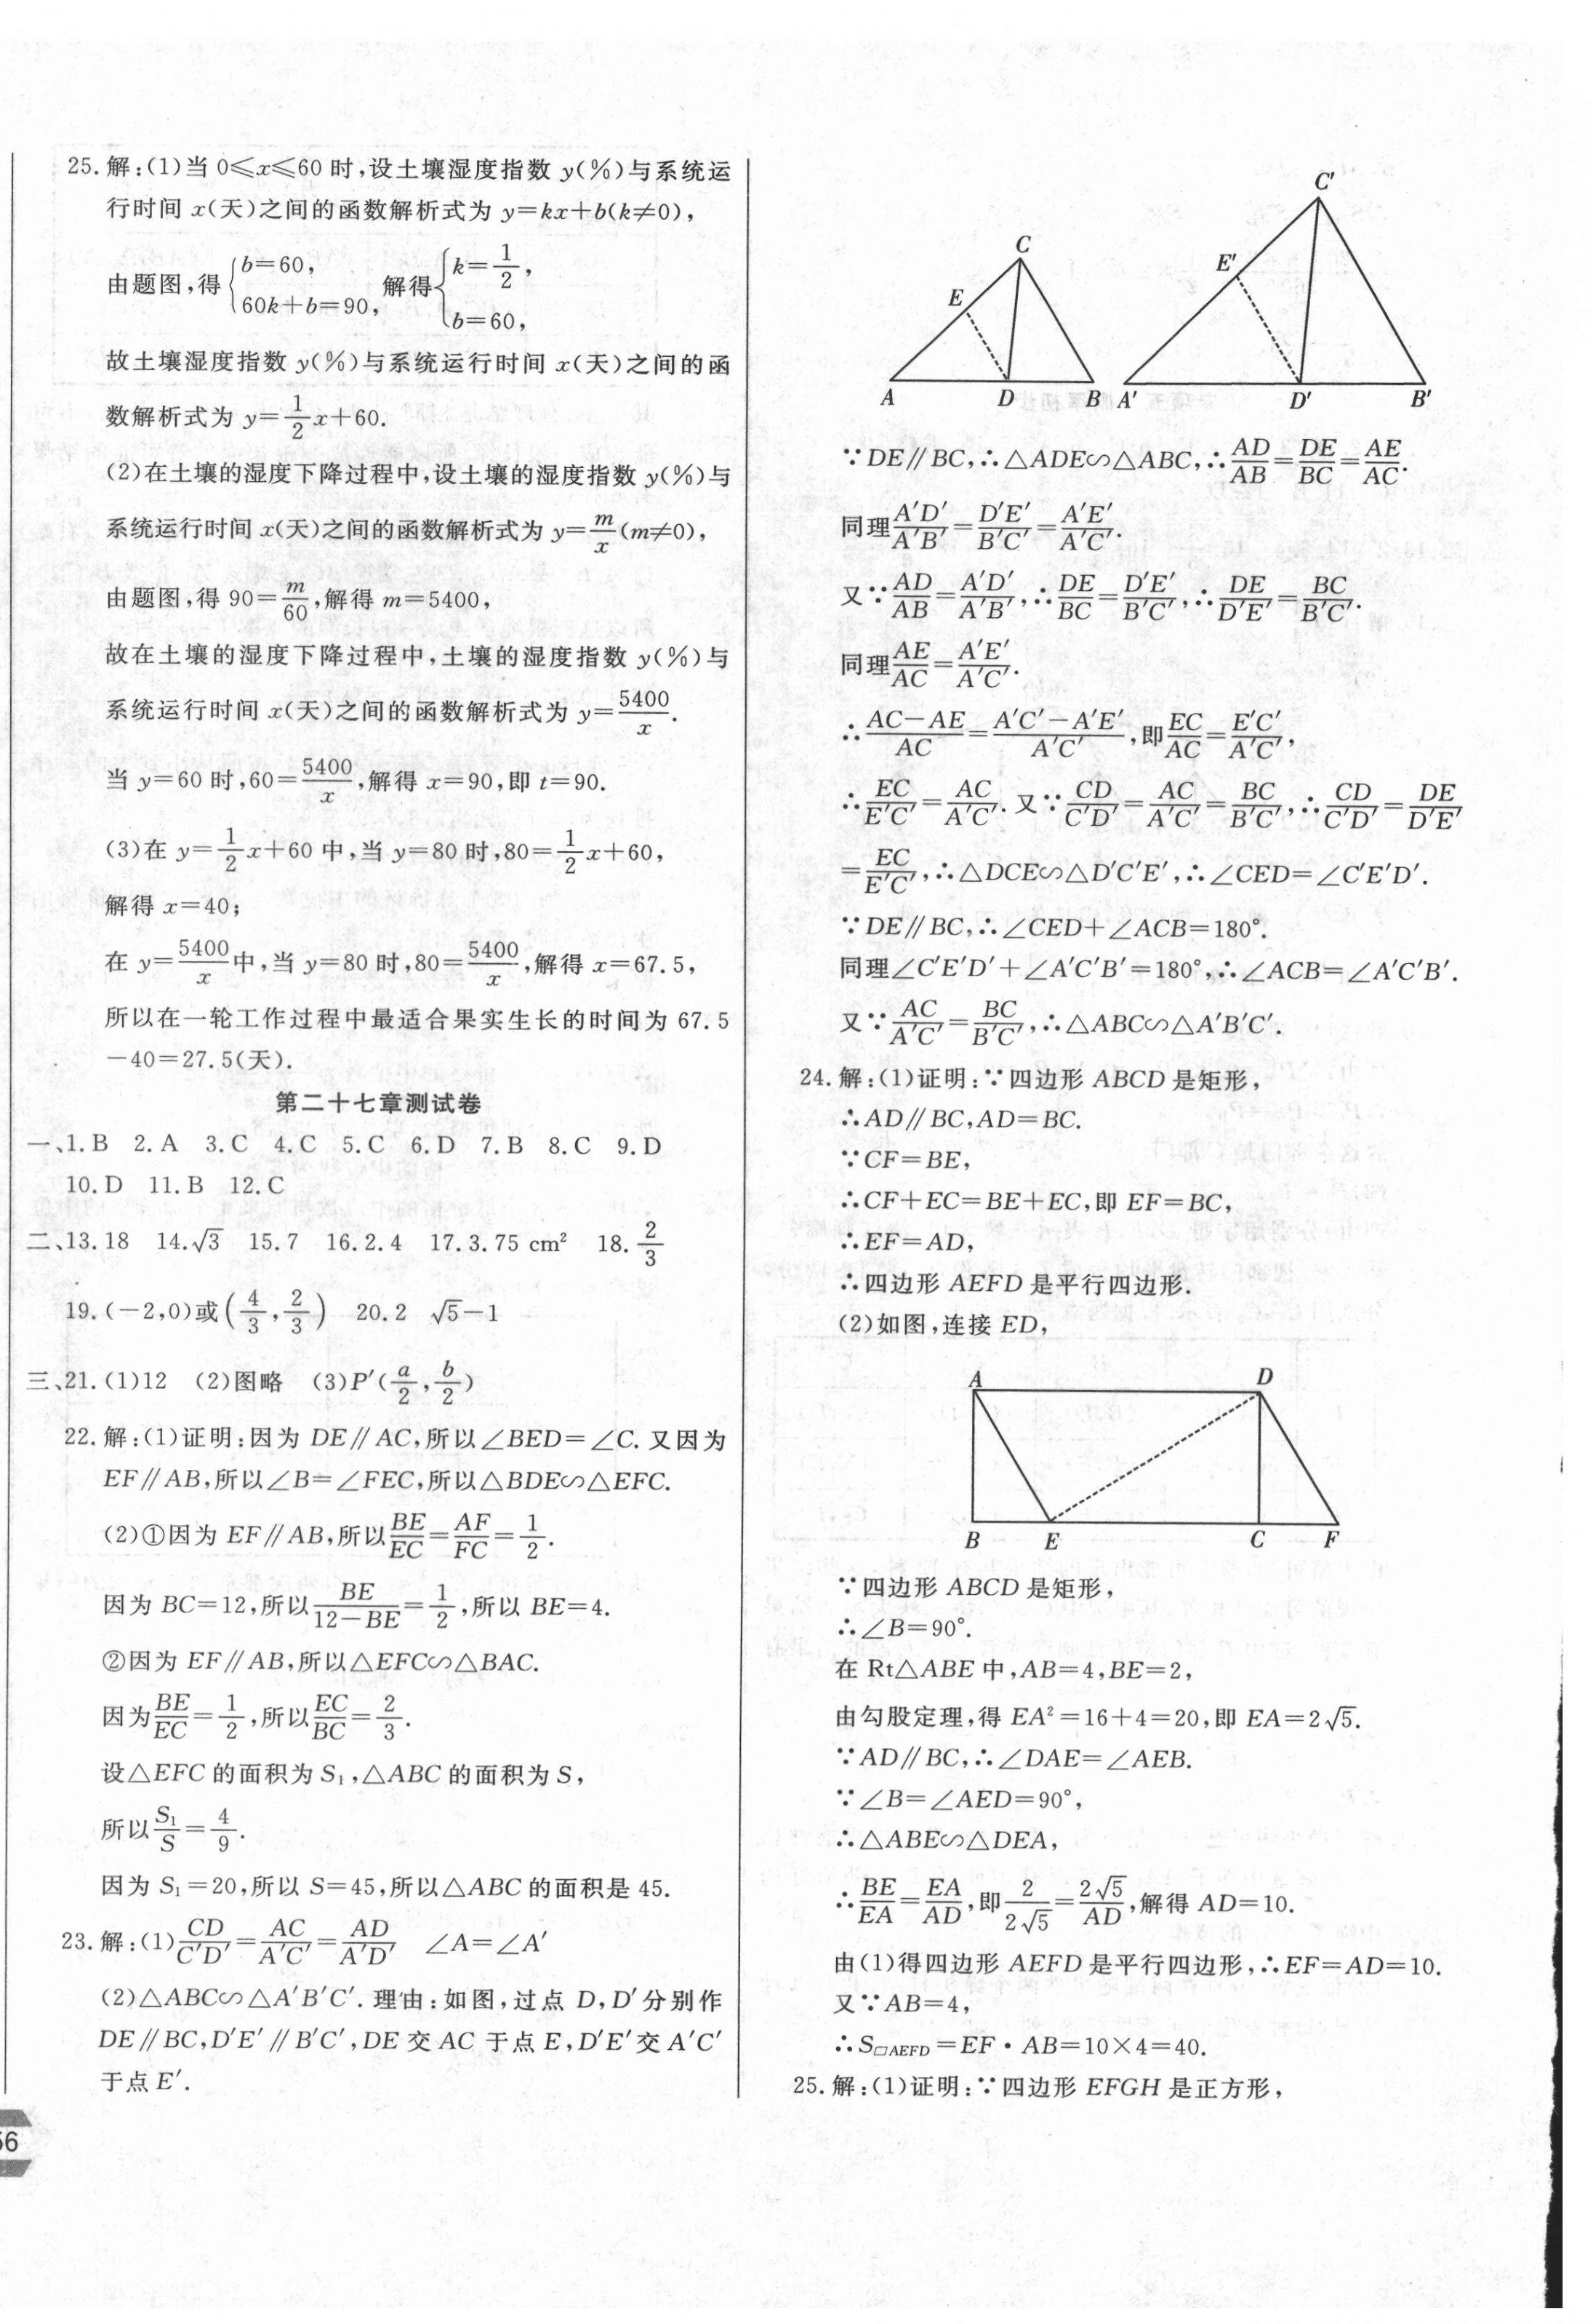 25. 解:(1)当 0≤x≤60 时,设土壤湿度指数 y(%)与系统运
行时间 x(天)之间的函数解析式为 y=kx+b(k≠0),
由题图,得{b=60, 60k+b=90, 解得{k=1/2, b=60,
故土壤湿度指数 y(%)与系统运行时间 x(天)之间的函
数解析式为 y=1/2x+60.
(2)在土壤的湿度下降过程中,设土壤的湿度指数 y(%)与
系统运行时间 x(天)之间的函数解析式为 y=m/x(m≠0),
由题图,得 90=m/60,解得 m=5400,
故在土壤的湿度下降过程中,土壤的湿度指数 y(%)与
系统运行时间 x(天)之间的函数解析式为 y=5400/x.
当 y=60 时,60=5400/x,解得 x=90,即 t=90.
(3)在 y=1/2x+60 中,当 y=80 时,80=1/2x+60,
解得 x=40;
在 y=5400/x中,当 y=80 时,80=5400/x,解得 x=67.5,
所以在一轮工作过程中最适合果实生长的时间为 67.5
-40=27.5(天).
第二十七章测试卷
一、1.B 2.A 3.C 4.C 5.C 6.D 7.B 8.C 9.D
10.D 11.B 12.C
二、13.18 14.√3 15.7 16.2.4 17.3.75 cm² 18.2/3
19.(-2,0)或(4/3,2/3) 20.2 √5-1
三、21.(1)12 (2)图略 (3)P′(a/2,b/2)
22. 解:(1)证明:因为 DE∥AC,所以∠BED=∠C. 又因为
EF∥AB,所以∠B=∠FEC,所以△BDE∽△EFC.
(2)①因为 EF∥AB,所以BE/EC=AF/FC=1/2.
因为 BC=12,所以BE/(12-BE)=1/2,所以 BE=4.
②因为 EF∥AB,所以△EFC∽△BAC.
因为BE/EC=1/2,所以EC/BC=2/3.
设△EFC 的面积为 S₁,△ABC 的面积为 S,
所以S₁/S=4/9.
因为 S₁=20,所以 S=45,所以△ABC 的面积是 45.
23. 解:(1)CD/C′D′=AC/A′C′=AD/A′D′ ∠A=∠A′
(2)△ABC∽△A′B′C′. 理由:如图,过点 D,D′分别作
DE∥BC,D′E′∥B′C′,DE 交 AC 于点 E,D′E′交 A′C′
于点 E′.
56
C′
C
E′
E
A D B A′ D′ B′
∵DE∥BC,∴△ADE∽△ABC,∴AD/AB=DE/BC=AE/AC.
同理A′D′/A′B′=D′E′/B′C′=A′E′/A′C′.
又∵AD/AB=A′D′/A′B′,∴DE/BC=D′E′/B′C′,∴DE/D′E′=BC/B′C′.
同理AE/AC=A′E′/A′C′.
∴(AC-AE)/AC=(A′C′-A′E′)/A′C′,即EC/AC=E′C′/A′C′,
∴EC/E′C′=AC/A′C′. 又∵CD/C′D′=AC/A′C′=BC/B′C′,∴CD/C′D′=DE/D′E′
=EC/E′C′,∴△DCE∽△D′C′E′,∴∠CED=∠C′E′D′.
∵DE∥BC,∴∠CED+∠ACB=180°.
同理∠C′E′D′+∠A′C′B′=180°,∴∠ACB=∠A′C′B′.
又∵AC/A′C′=BC/B′C′,∴△ABC∽△A′B′C′.
24. 解:(1)证明:∵四边形 ABCD 是矩形,
∴AD∥BC,AD=BC.
∵CF=BE,
∴CF+EC=BE+EC,即 EF=BC,
∴EF=AD,
∴四边形 AEFD 是平行四边形.
(2)如图,连接 ED,
A D
B E C F
∵四边形 ABCD 是矩形,
∴∠B=90°.
在 Rt△ABE 中,AB=4,BE=2,
由勾股定理,得 EA²=16+4=20,即 EA=2√5.
∵AD∥BC,∴∠DAE=∠AEB.
∵∠B=∠AED=90°,
∴△ABE∽△DEA,
∴BE/EA=EA/AD,即2/2√5=2√5/AD,解得 AD=10.
由(1)得四边形 AEFD 是平行四边形,∴EF=AD=10.
又∵AB=4,
∴S▱AEFD=EF·AB=10×4=40.
25. 解:(1)证明:∵四边形 EFGH 是正方形,